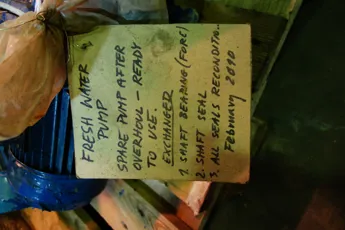 FRESH WATER
PUMP
SPARE PUMP AFTER
OVERHOUL - READY
TO USE.
EXCHANGED
1. SHAFT BEARING (FORC)
2. SHAFT SEAL
3. ALL SEALS RECONDITIO..
February 2010